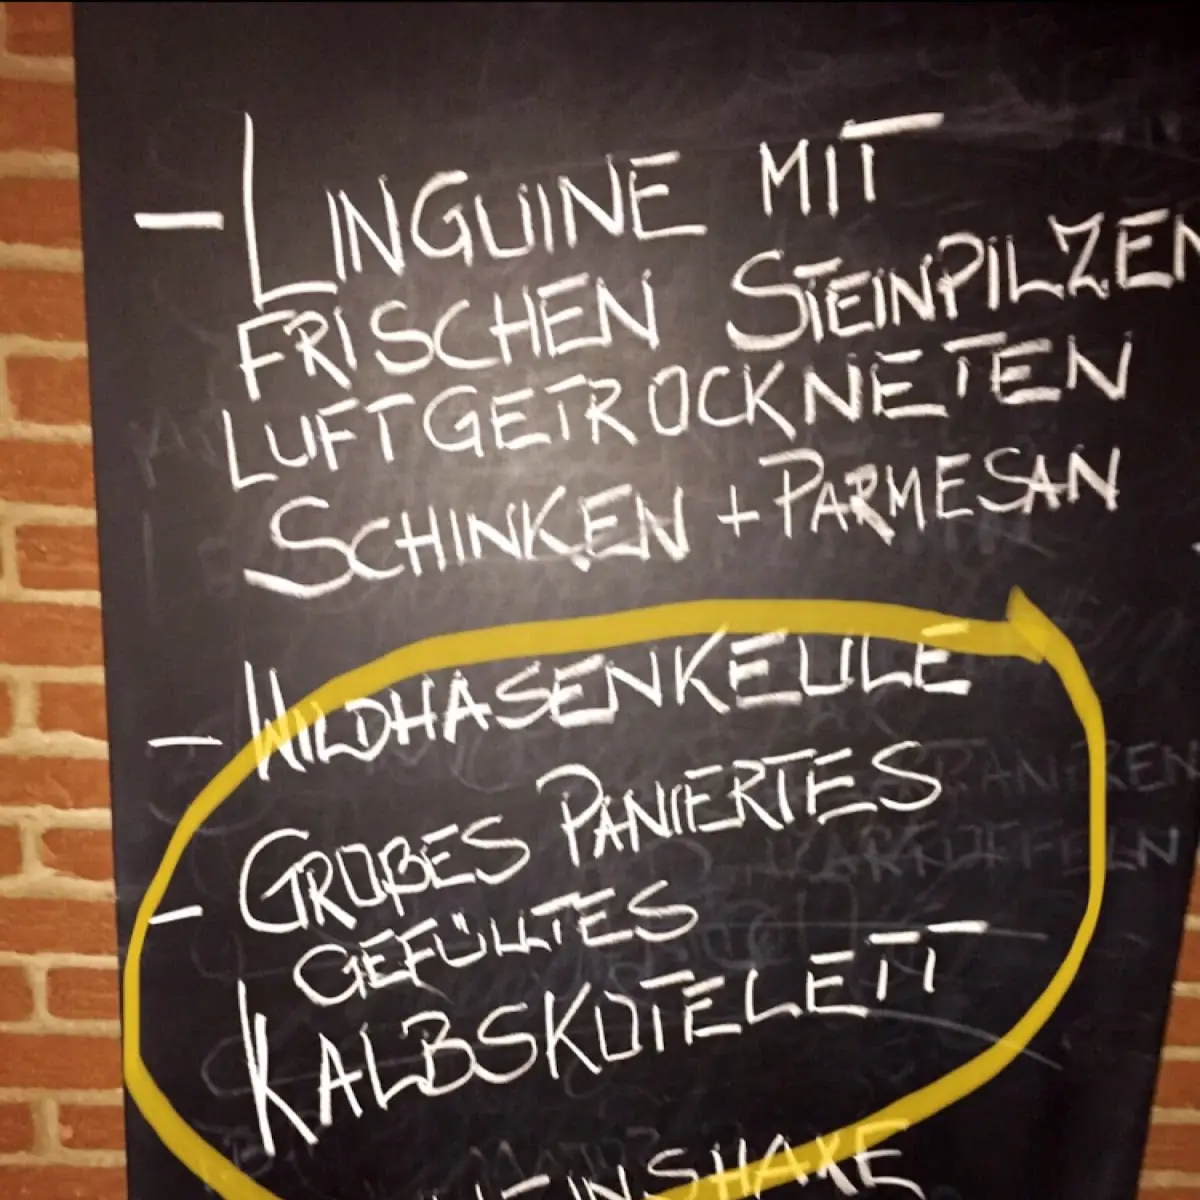 - LINGUINE MIT
FRISCHEN STEINPILZEN
LUFTGETROCKNETEN
SCHINKEN + PARMESAN
- WILDHASENKEULE
- GROßES PANIERTES
GEFÜLLTES
KALBSKOTELETT